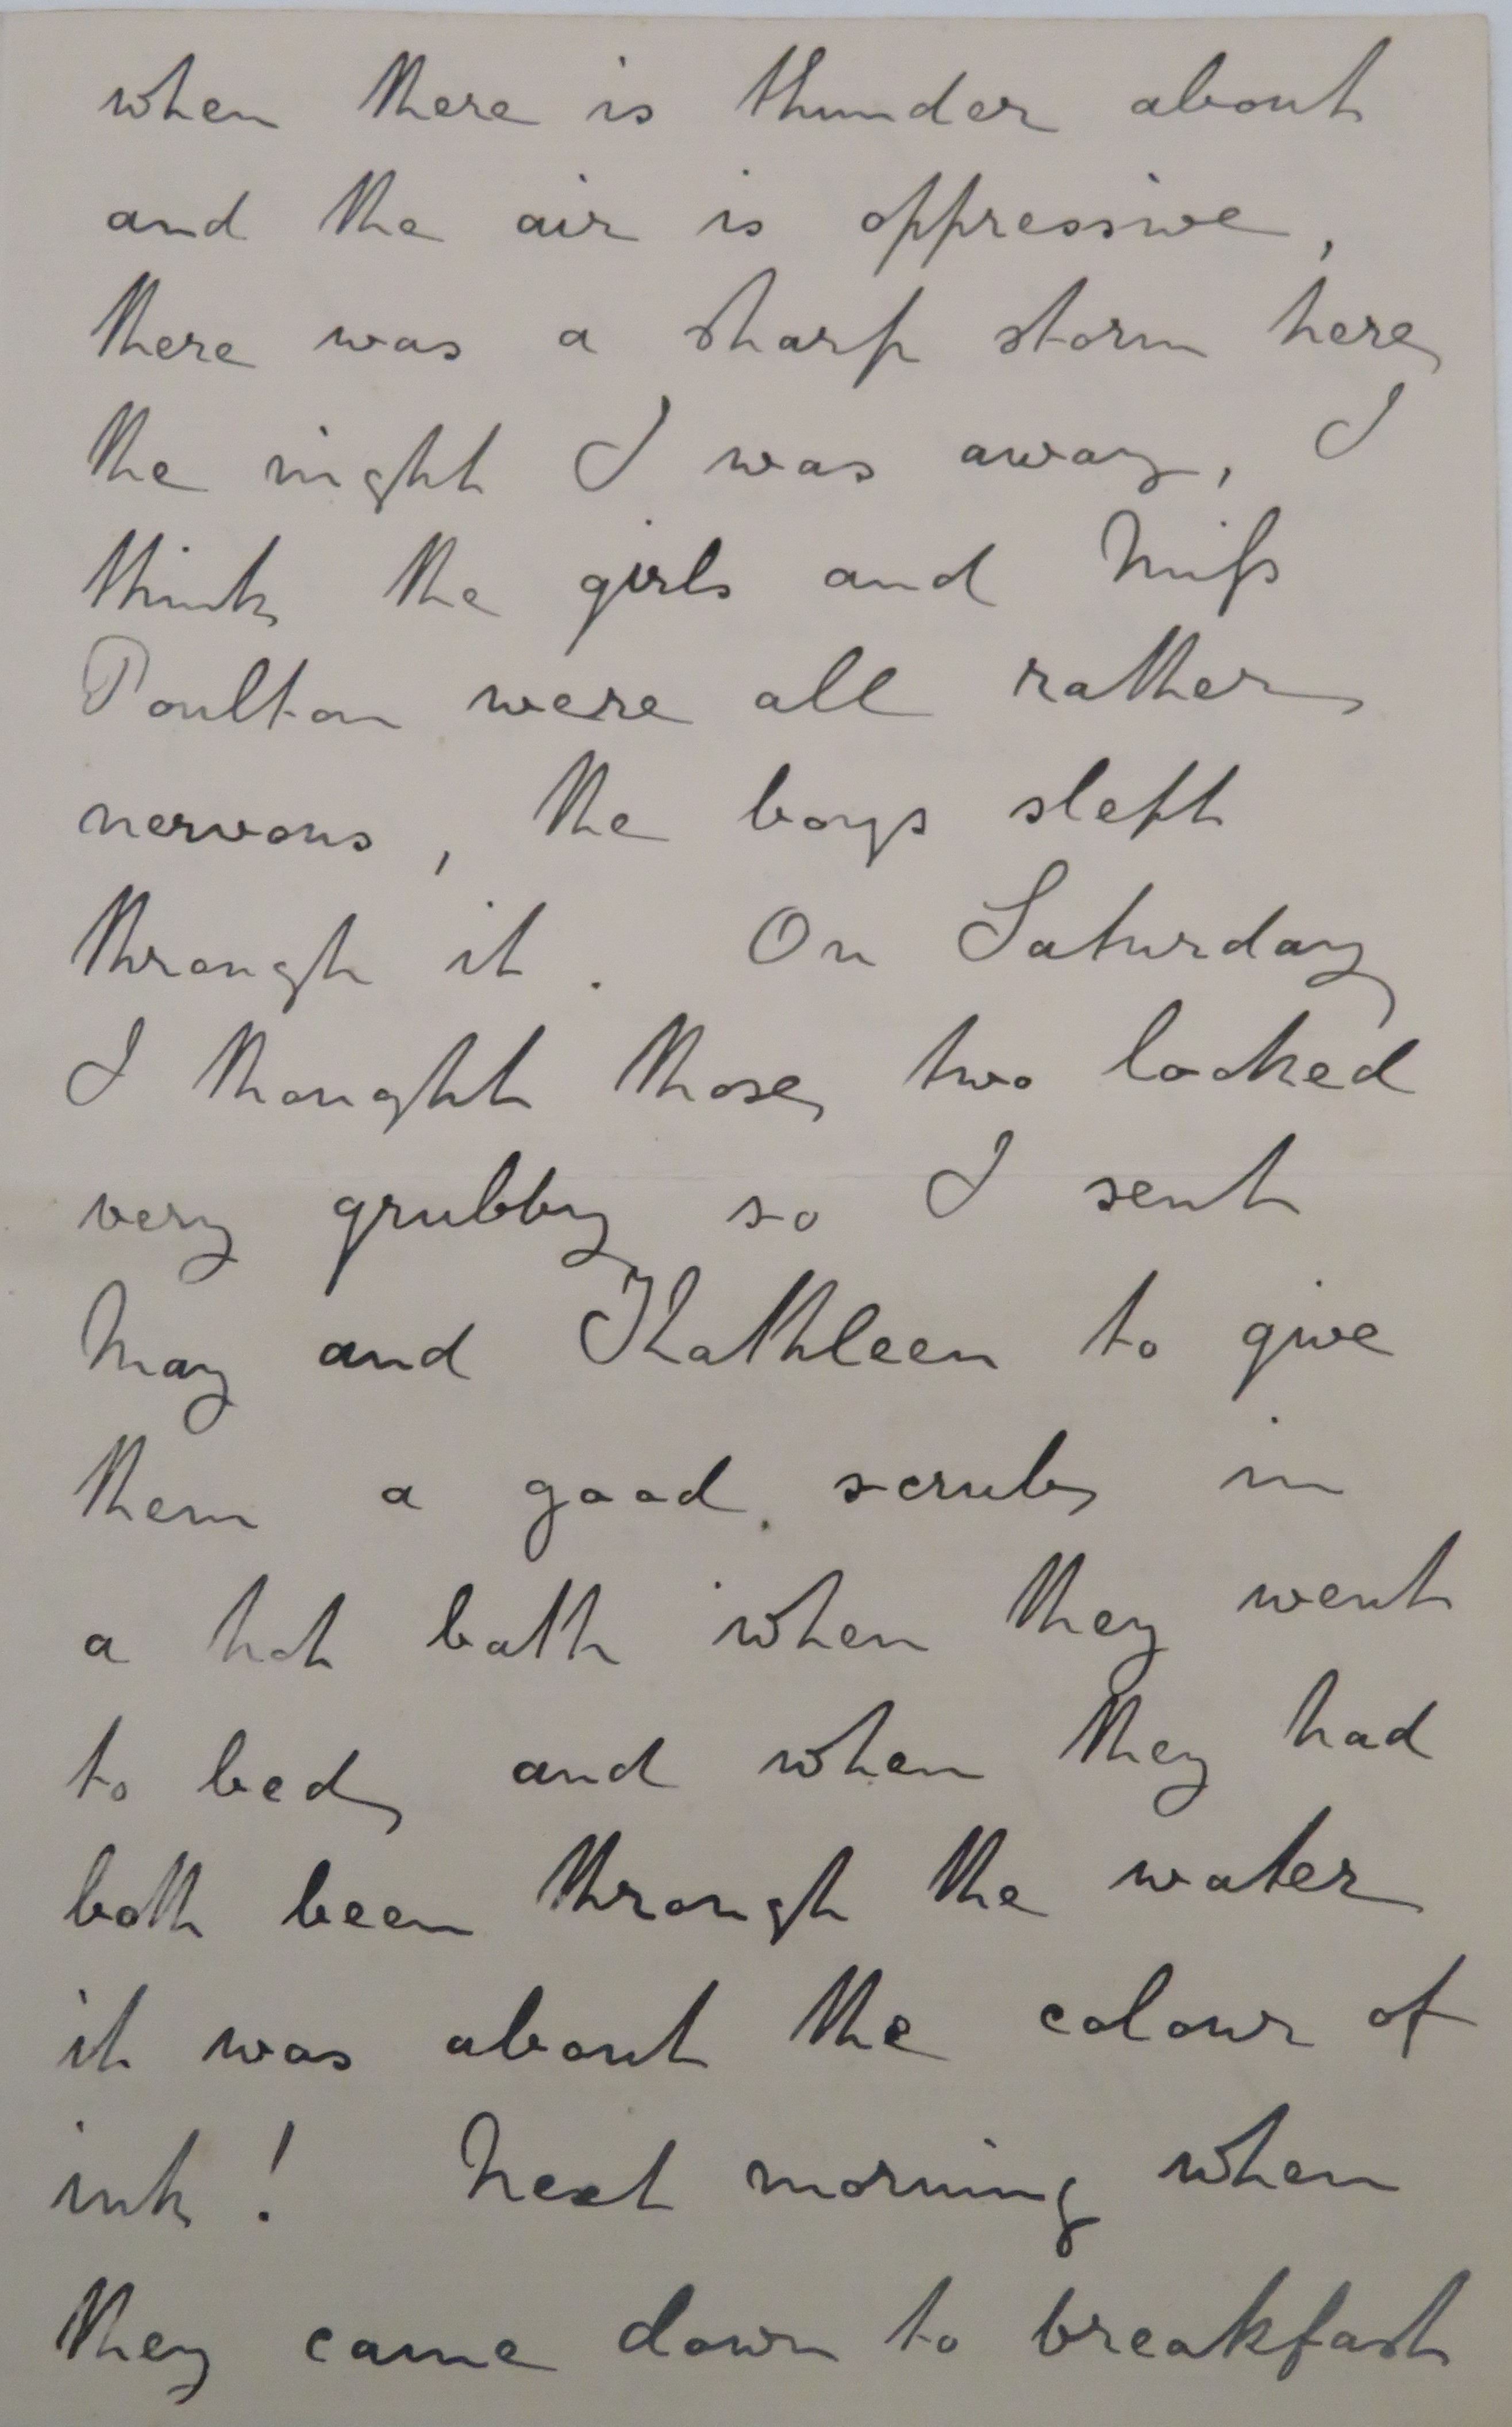 when there is thunder about
and the air is oppressive,
there was a sharp storm here
the night I was away, I
think the girls and Miſs
Poulton were all rather
nervous, the boys slept
through it. On Saturday
I thought those two looked
very grubby so I sent
May and Kathleen to give
them a good scrub in
a hot bath when they went
to bed, and when they had
both been through the water
it was about the colour of
ink! Next morning when
they came down to breakfast